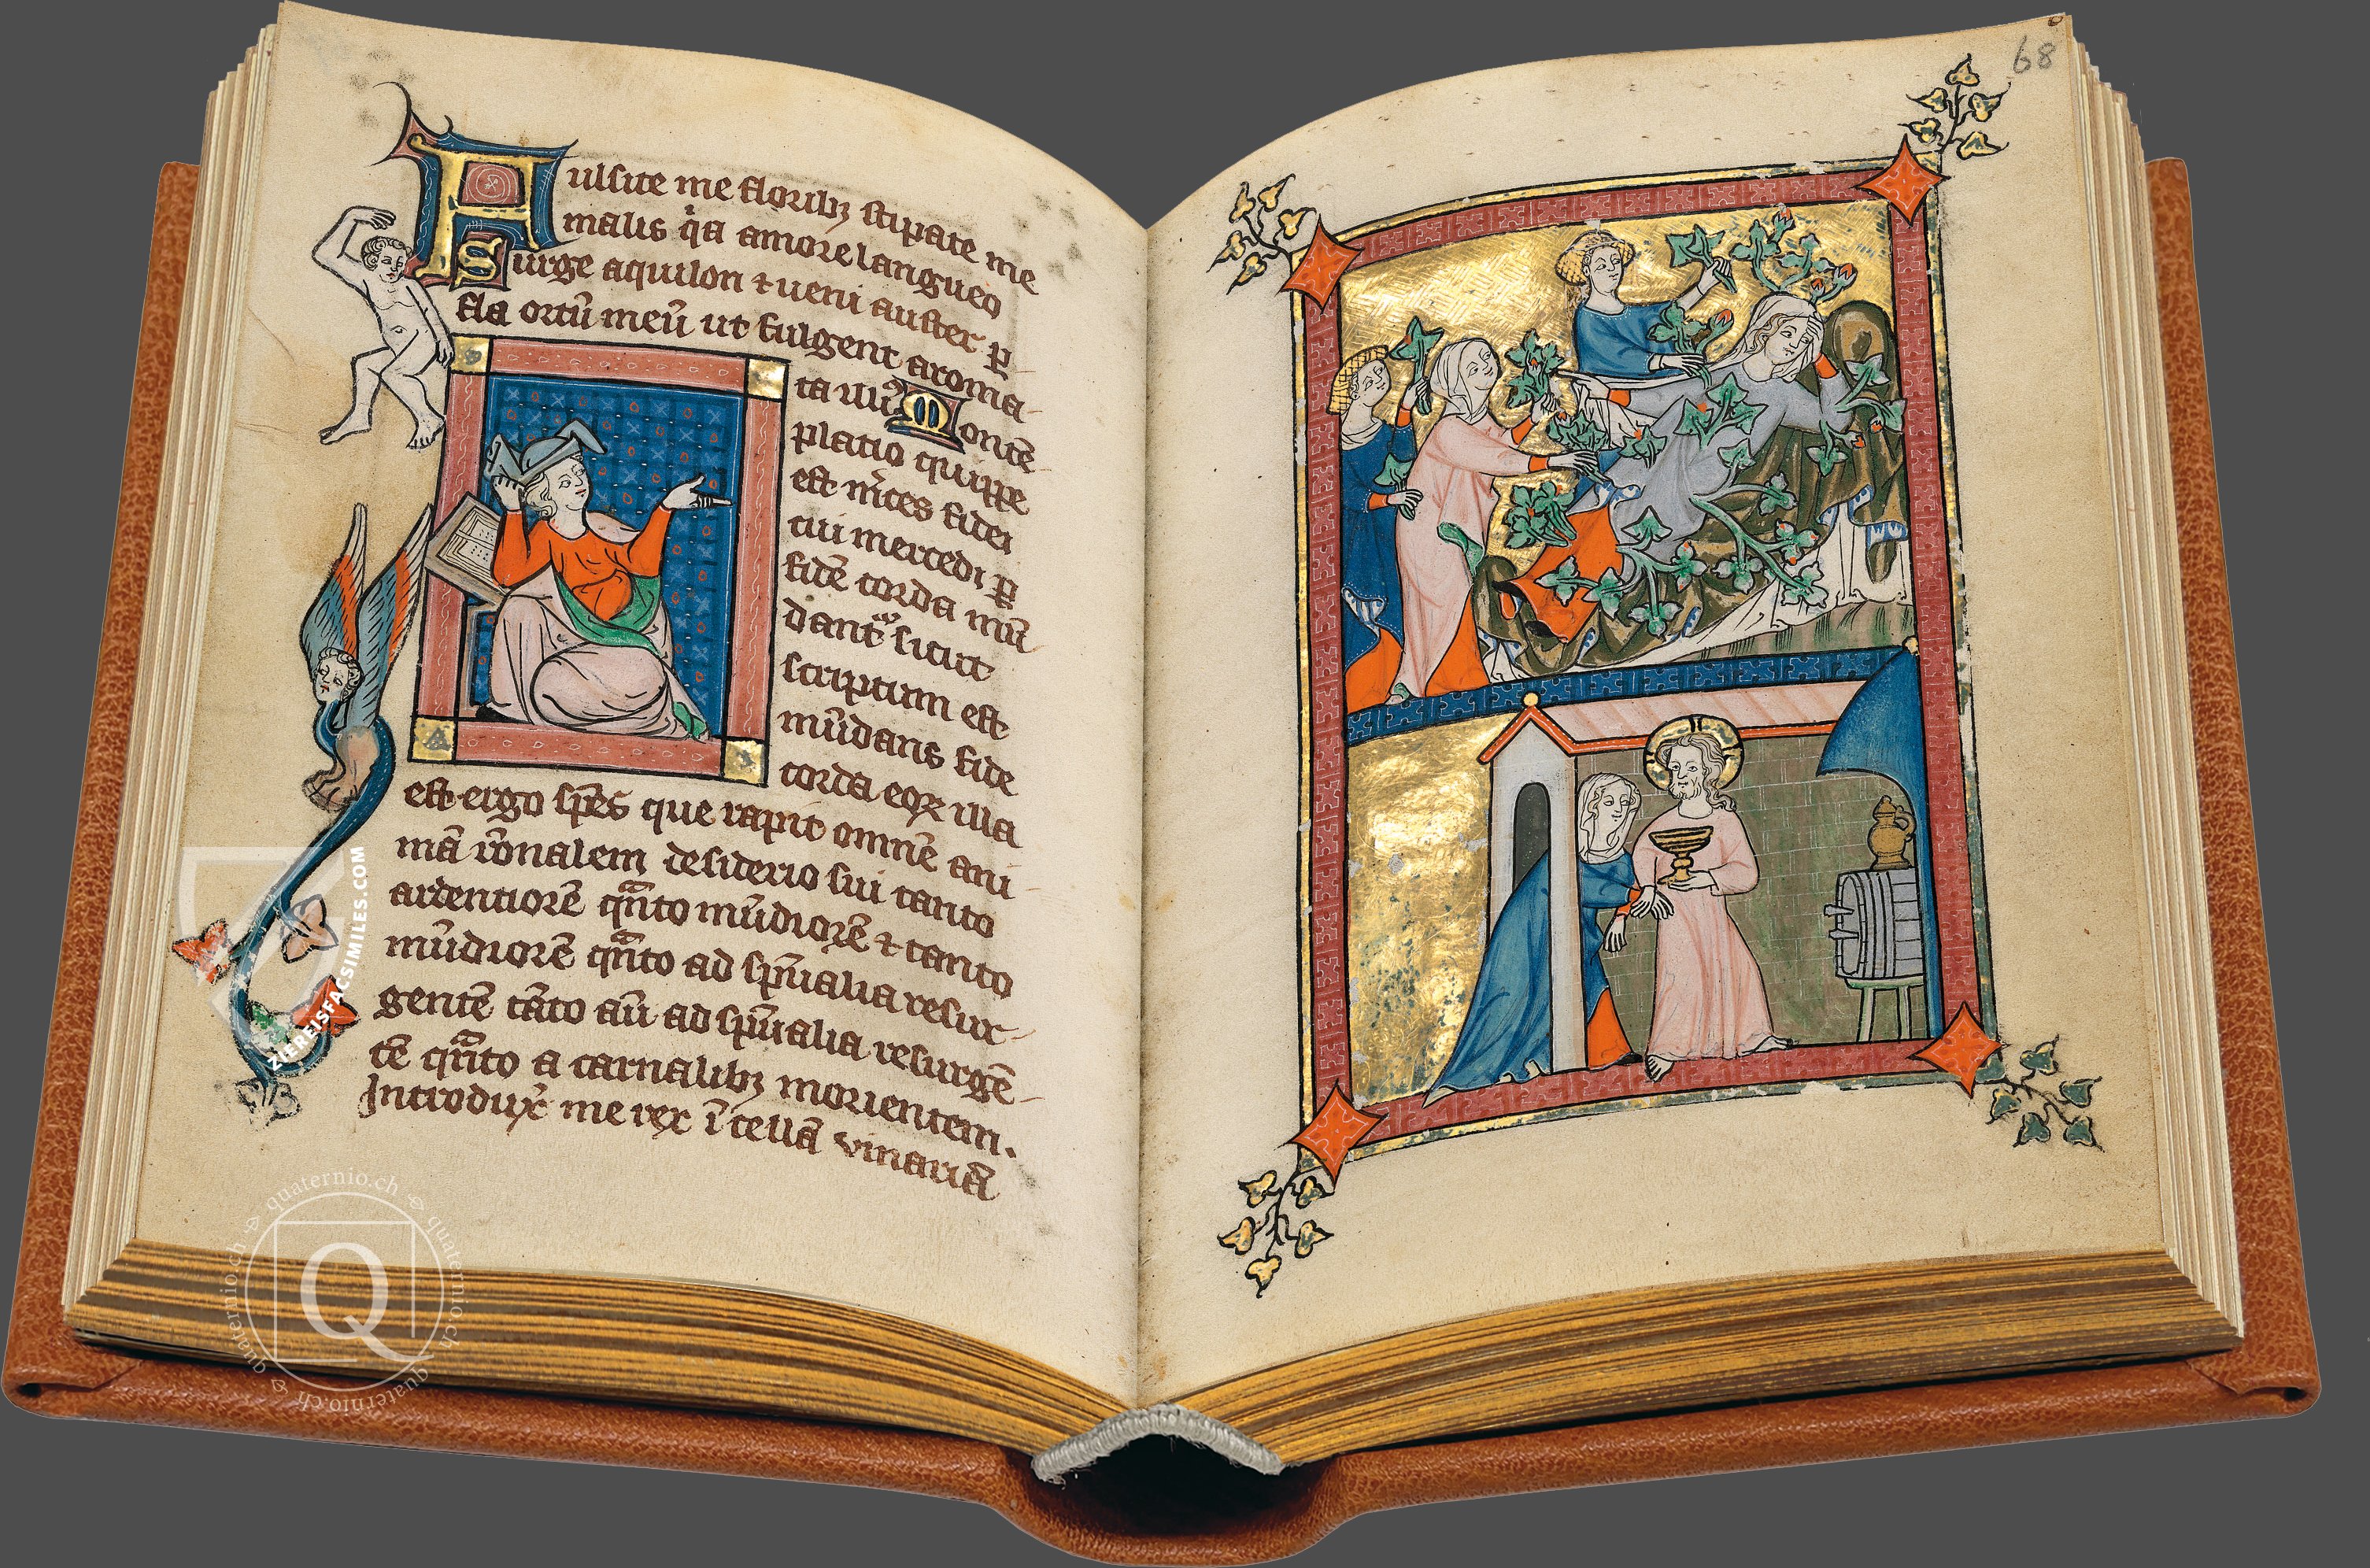 68
Fulsite me floribꝫ stipate me
malis q̇a amore langueo
surge aquilon ⁊ ueni auster ꝑ
fla ortū meū ut fulgent aroma-
ta
Montē-
platio quippe
est
fidei
cui mercedi ꝑ
fidē corda mū
sicut
scriptum est
mūdans fide
corda eoꝝ illa
est ergo spēs que rapit omnē ani-
mā desiderio sui tanto
ardentiorē qᷓnto mūdiorē ⁊ tanto
mūdiorē qᷓnto ad spūalia resur-
gentē tāto aū ad spūalia resurgē-
tē qᷓnto a carnalibꝫ morientem.
Introdux̄ me rex ī cellā vinariā
ZIEREISFACSIMILES.COM
quaternio.ch & quaternio.ch & quaternio.ch & quaternio.ch &
Q